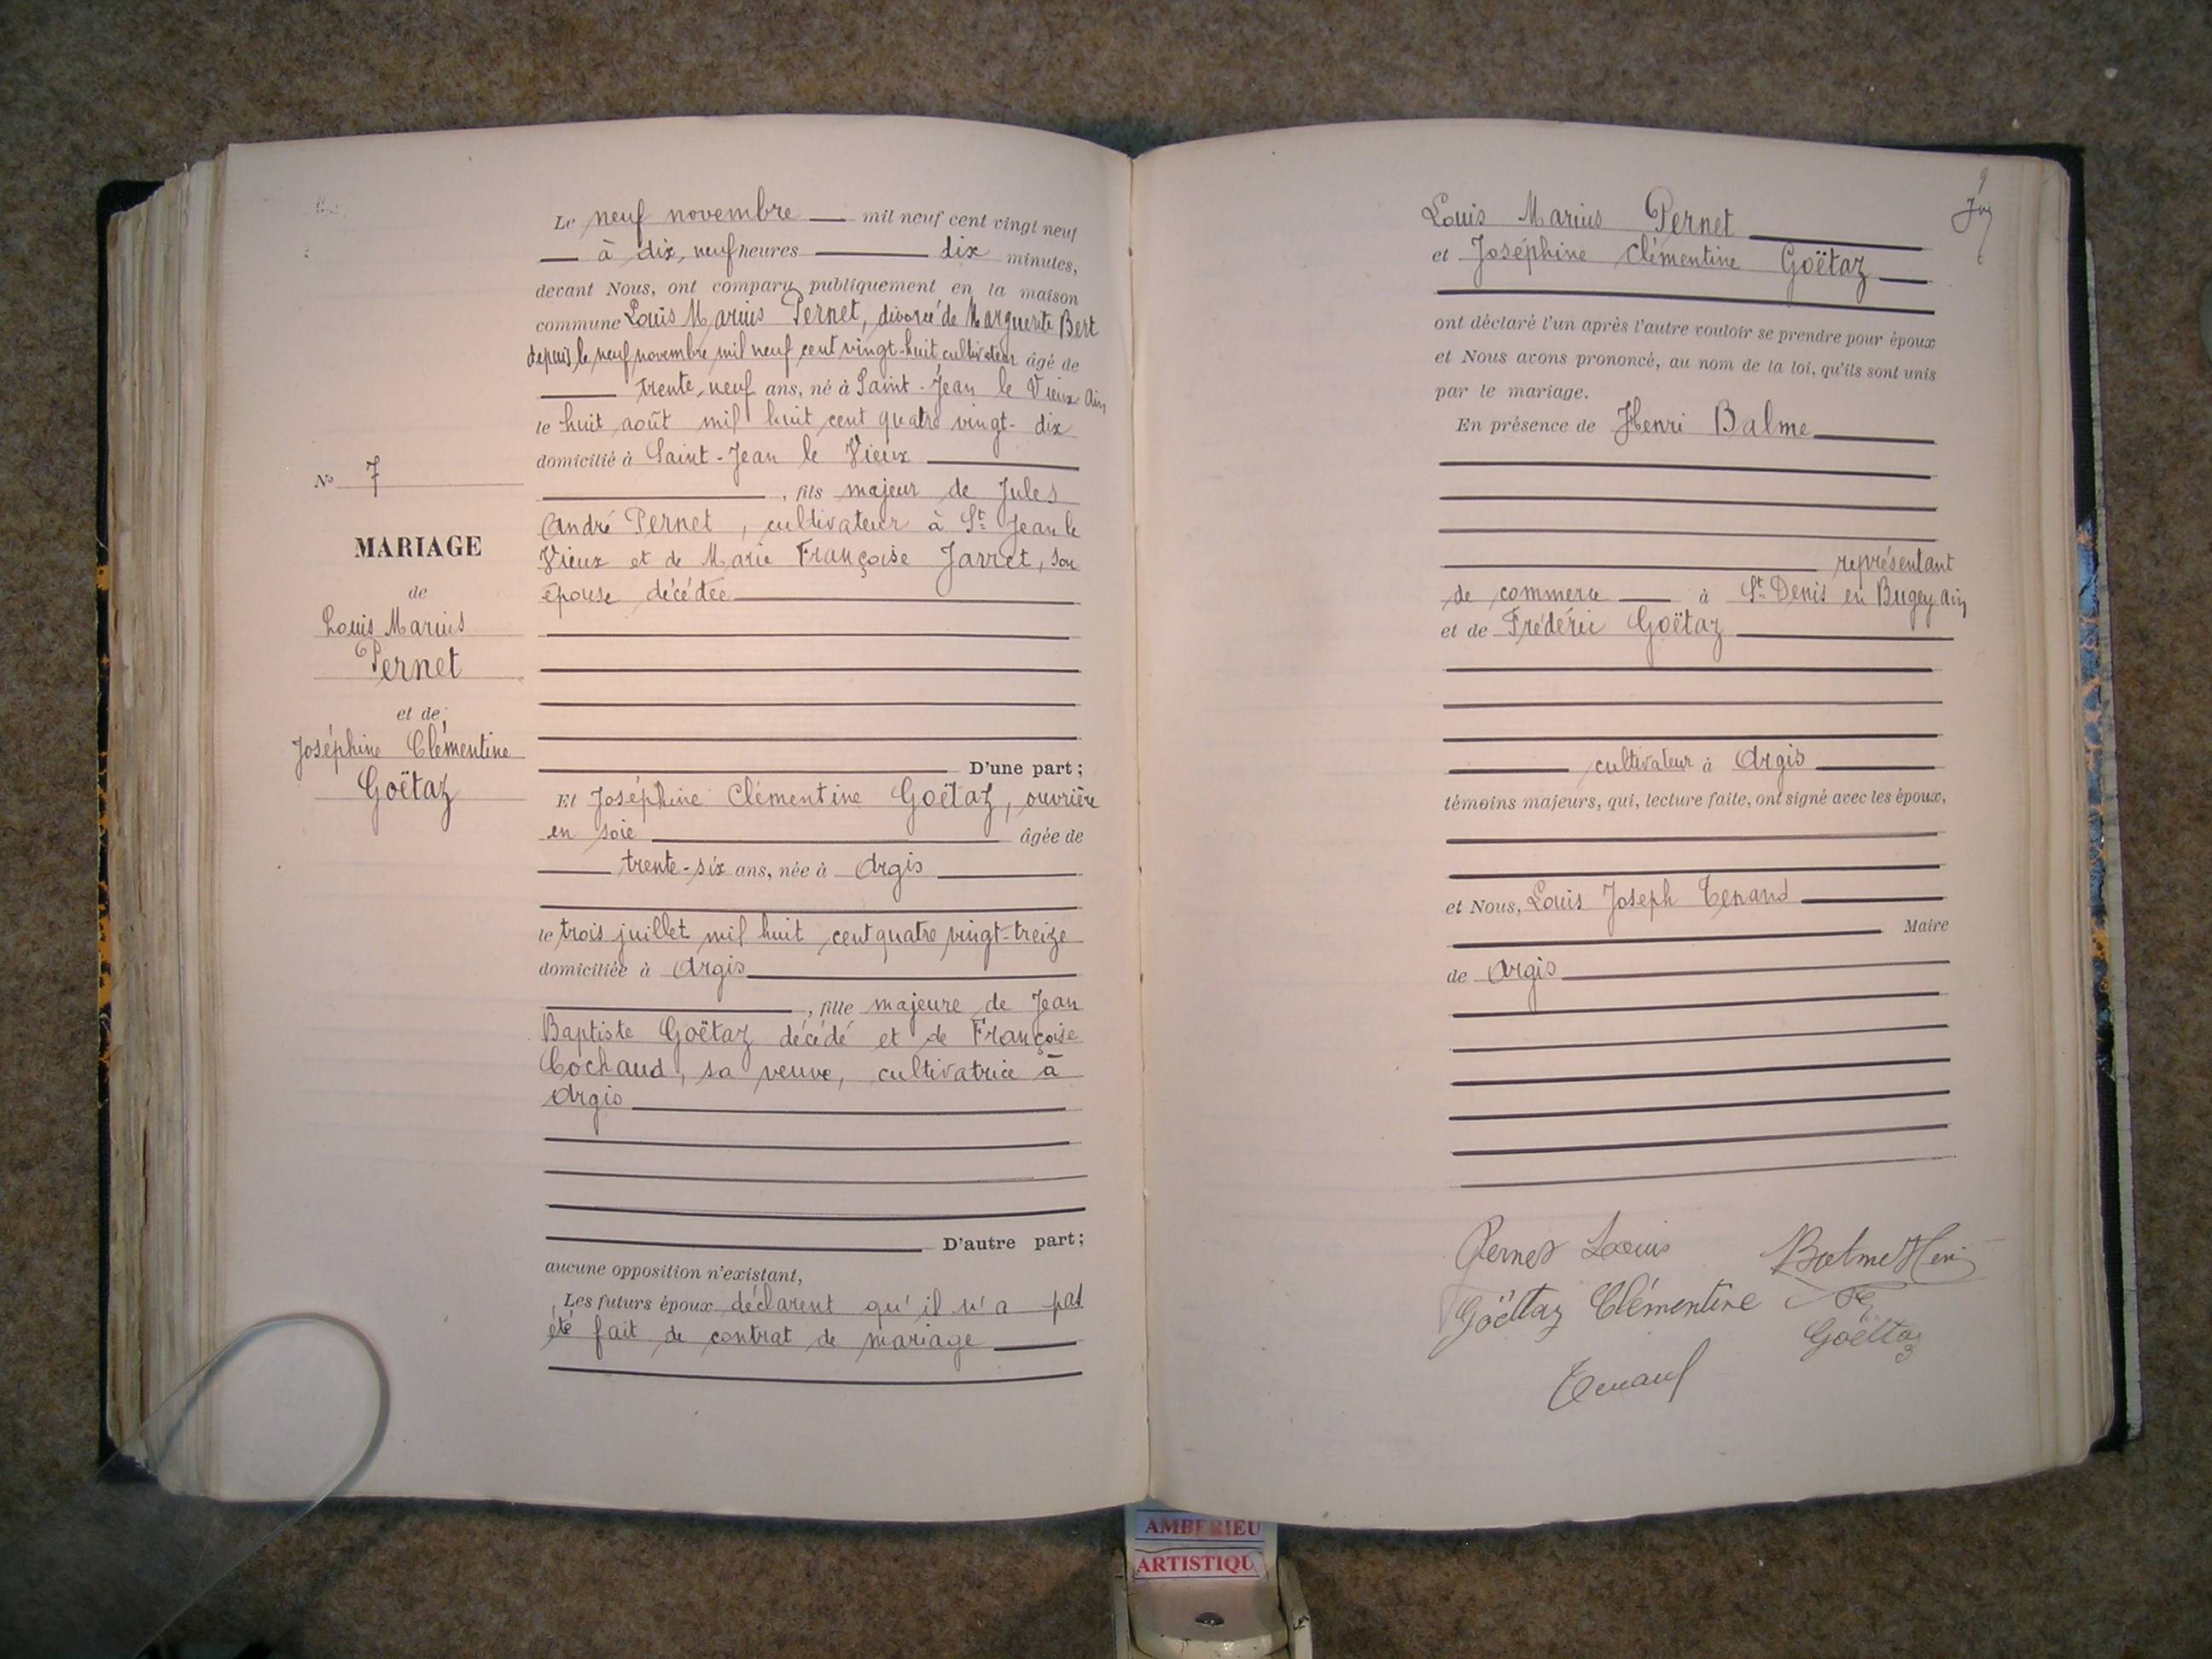 Le neuf novembre mil neuf cent vingt neuf
à dix, neuf heures dix minutes,
devant Nous, ont comparu publiquement en la maison
commune Louis Marius Pernet, divorcé de Marguerite Bert
depuis le neuf novembre mil neuf cent vingt-huit cultivateur âgé de
trente, neuf ans, né à Saint-Jean le Vieux Ain
le huit août mil huit cent quatre vingt-dix
domicilié à Saint-Jean le Vieux
, fils majeur de Jules
André Pernet, cultivateur à St Jean le
Vieux et de Marie Françoise Jarret, son
épouse décédée
D'une part;
Et Joséphine Clémentine Goëtaz, ouvrière
en soie âgée de
trente-six ans, née à Argis
le trois juillet mil huit cent quatre vingt-treize
domiciliée à Argis
, fille majeure de Jean
Baptiste Goëtaz décédé et de Françoise
Cochaud, sa veuve, cultivatrice à
Argis
D'autre part;
aucune opposition n'existant,
Les futurs époux déclarent qu'il n'a pas
été fait de contrat de mariage
No 7
MARIAGE
de
Louis Marius
Pernet
et de
Joséphine Clémentine
Goëtaz
9
Louis Marius Pernet
et Joséphine Clémentine Goëtaz
ont déclaré l'un après l'autre vouloir se prendre pour époux
et Nous avons prononcé, au nom de la loi, qu'ils sont unis
par le mariage.
En présence de Henri Balme
représentant
de commerce à St Denis en Bugey Ain
et de Frédéric Goëtaz
cultivateur à Argis
témoins majeurs, qui, lecture faite, ont signé avec les époux,
et Nous, Louis Joseph Tenand
Maire
de Argis
Pernet Louis
Balme Henri
Goëttaz Clémentine
Goëttaz
Tenand
AMBERIEU
ARTISTIQU